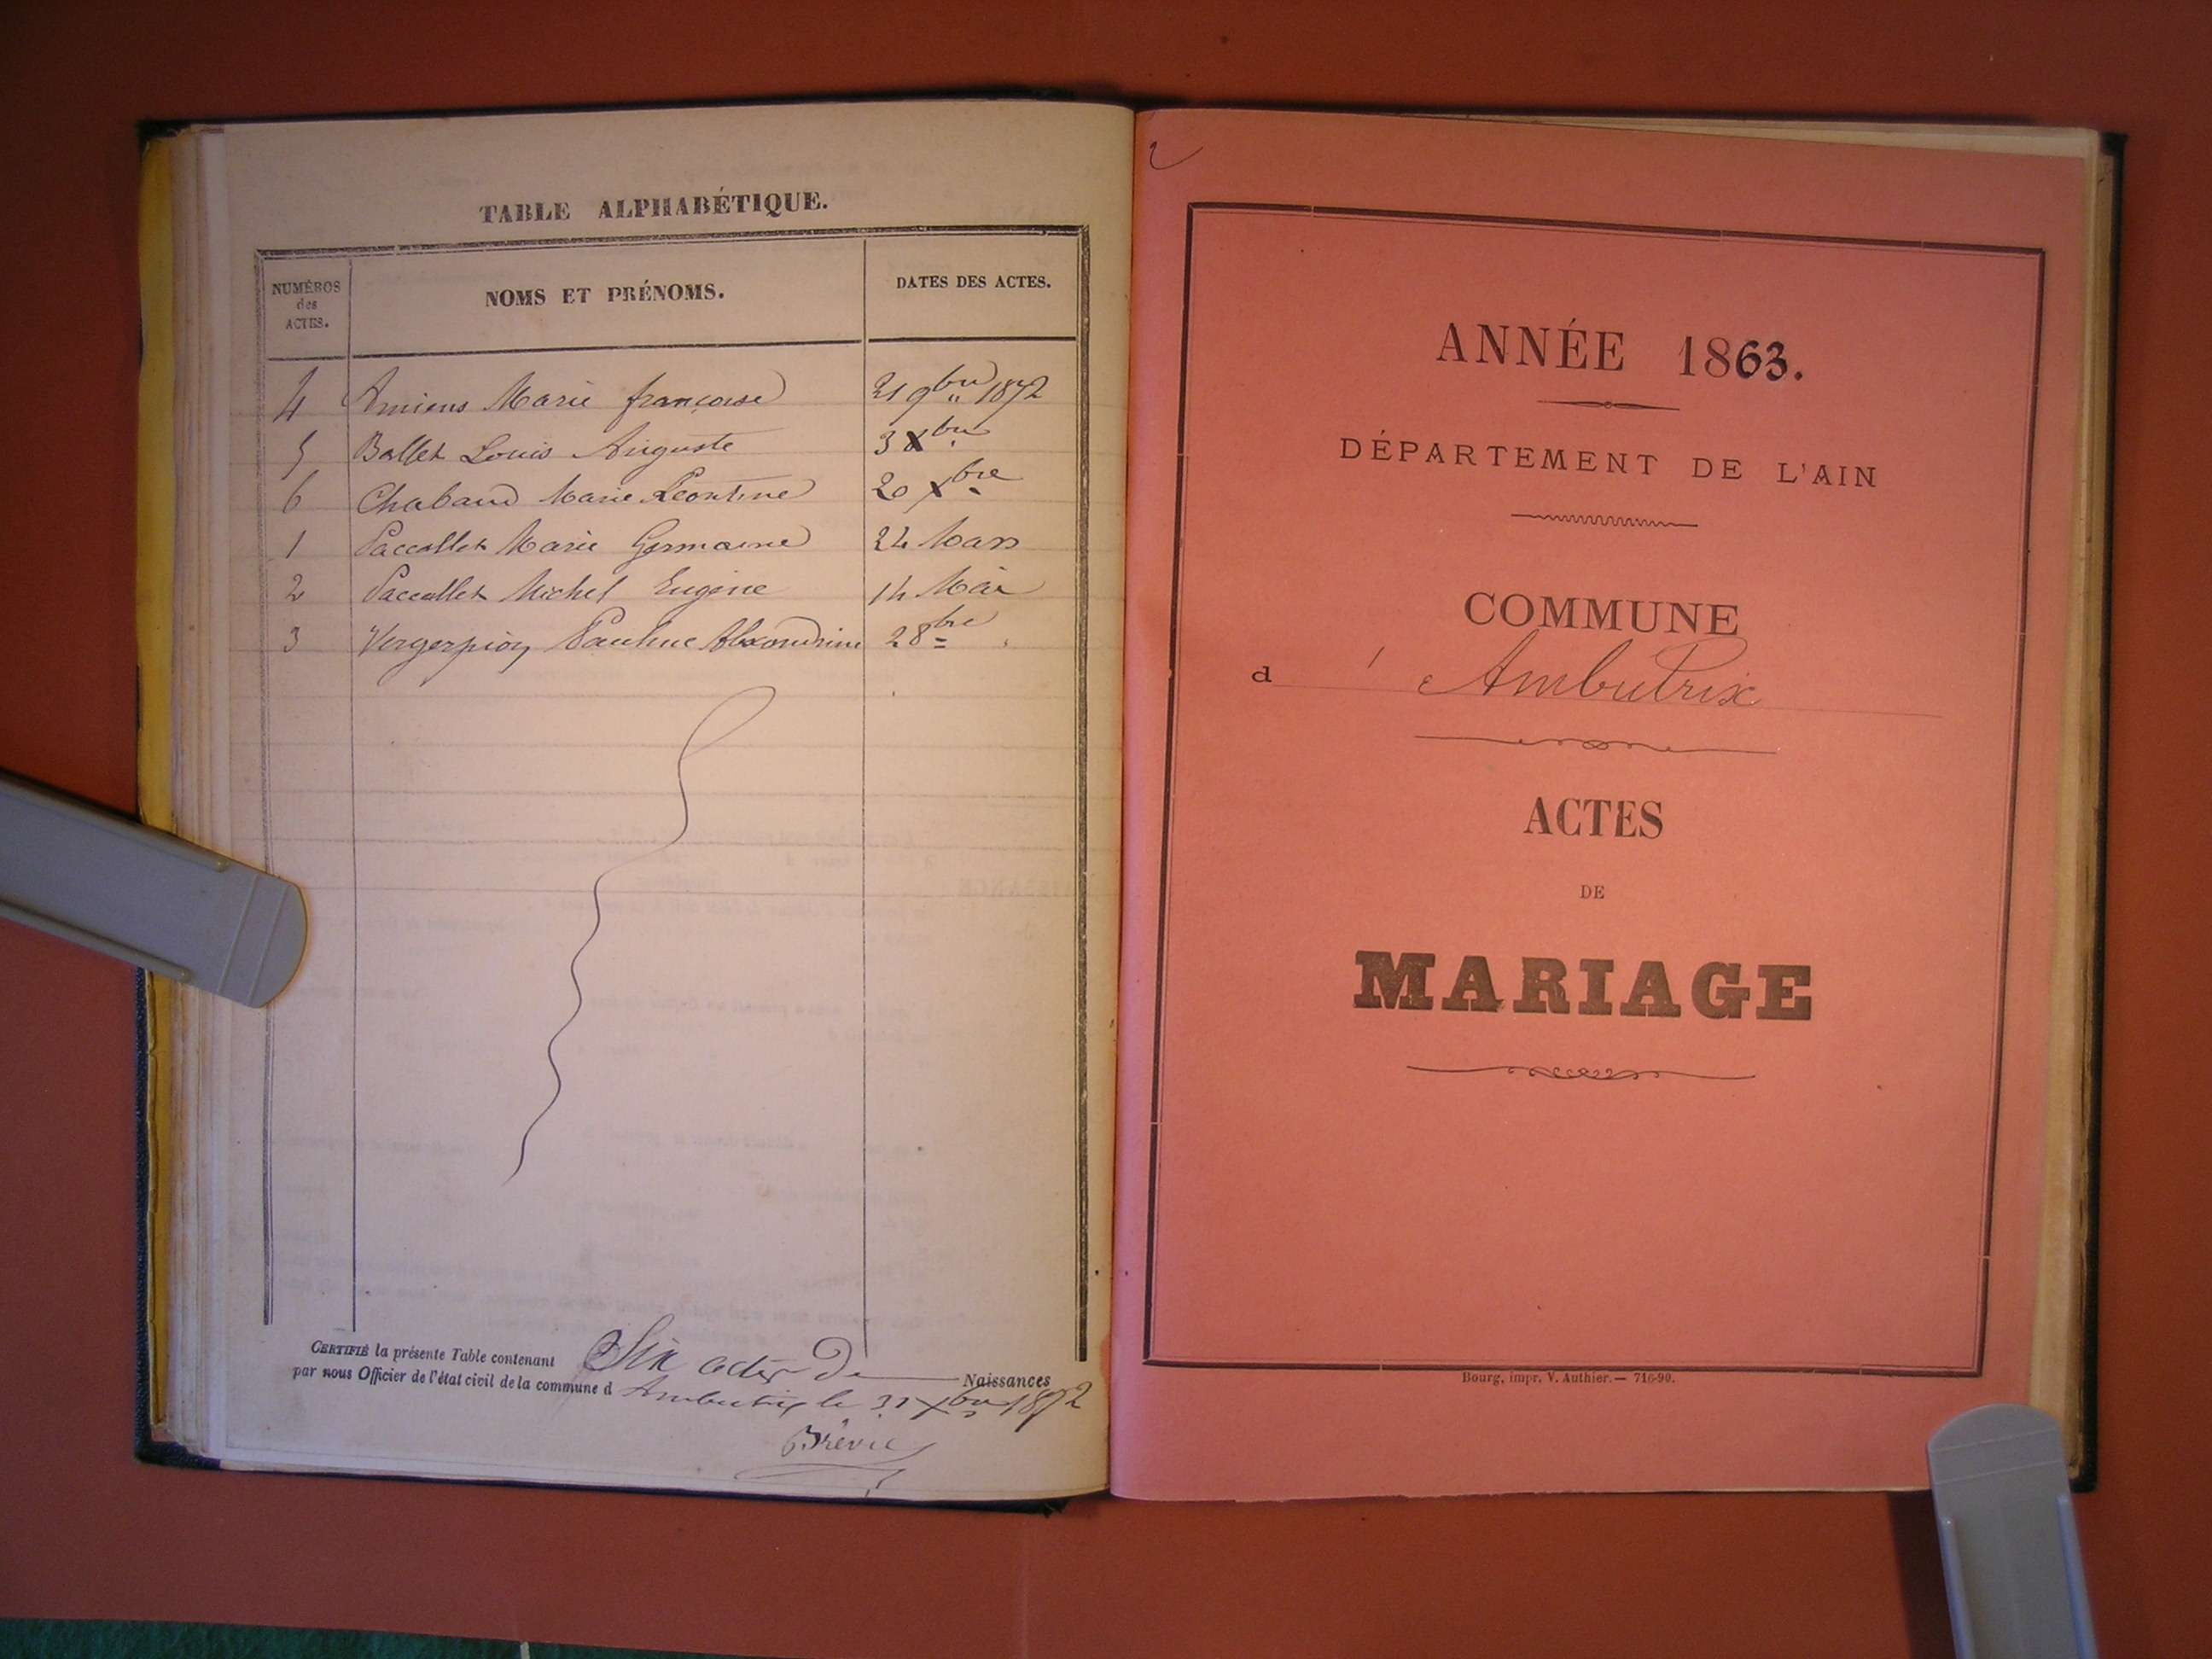 TABLE ALPHABÉTIQUE.
NUMÉROS
des
ACTES.
NOMS ET PRÉNOMS.
DATES DES ACTES.
4 Amiens Marie françoise 21 9bre 1872
5 Ballet Louis Auguste 3 Xbre
6 Chabaud Marie Léontine 20 Xbre
1 Paccallet Marie Germaine 24 Mars
2 Paccallet Michel Eugène 14 Mai
3 Pauline Alexandrine 28bre
CERTIFIÉ la présente Table contenant Six actes De Naissances
par nous Officier de l'état civil de la commune d Ambutrix le 31 Xbre 1872
2
ANNÉE 1863.
DÉPARTEMENT DE L'AIN
COMMUNE
d ' Ambutrix
ACTES
DE
MARIAGE
Bourg, impr. V. Authier. — 716-90.